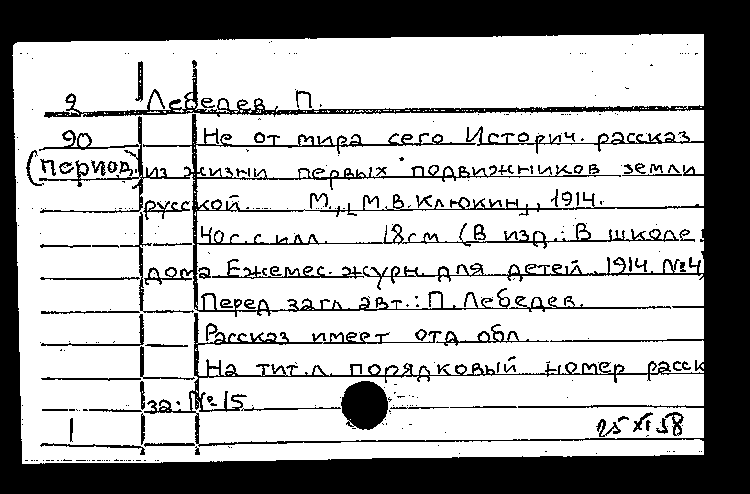 9 Лебедев, П.
90 Не от мира сего. Историч. рассказ
(период.) из жизни первых подвижников земли
русской. М., [М.В. Клюкин], 1914.
40 с. с илл. 18 см. (В изд.: В школе
дома. Ежемес. журн. для детей. 1914. №4)
Перед загл. авт.: П. Лебедев.
Рассказ имеет отд. обл.
На тит. л. порядковый номер расск
за: № 15
1 25 XI 58